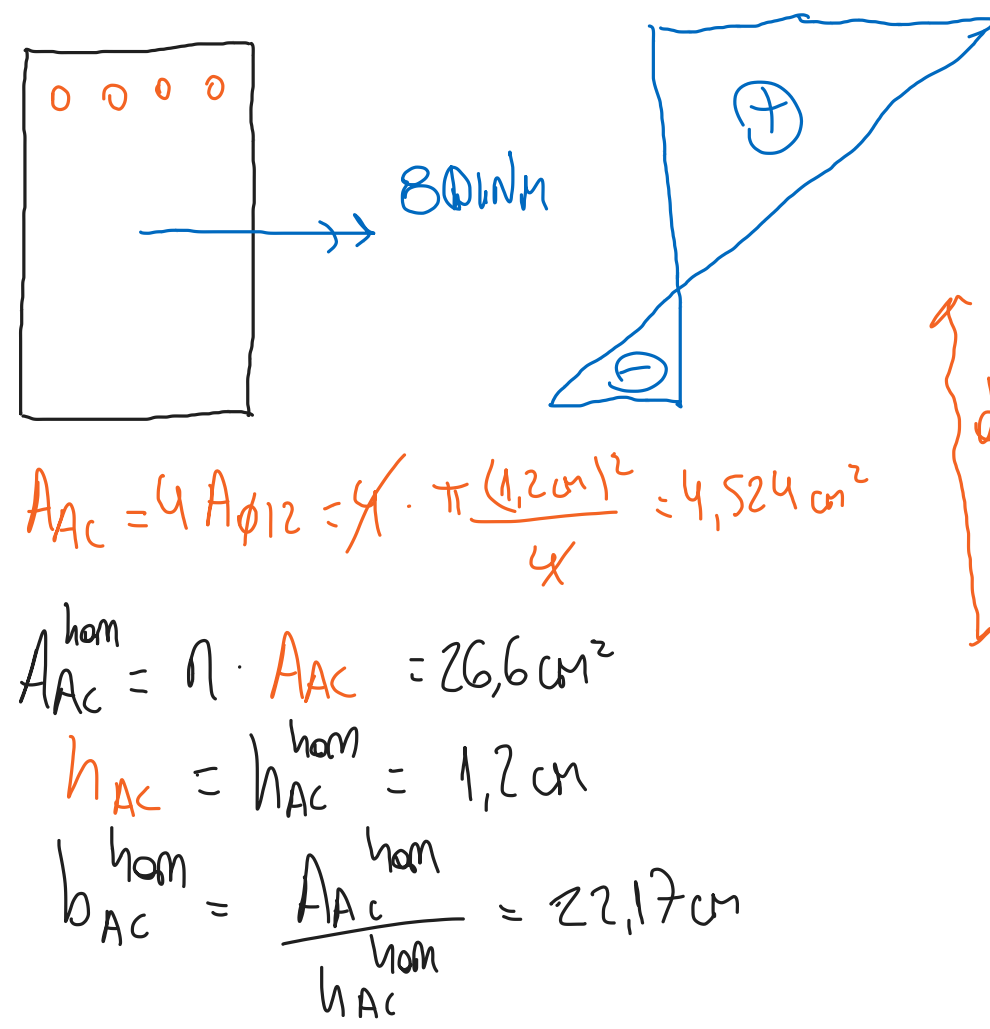 80kNm
+
-
d
A_AC = 4 A_ϕ12 = 4 · π (1,2 cm)² / 4 = 4,524 cm²
A_AC^hom = n · A_AC = 26,6 cm²
h_AC = h_AC^hom = 1,2 cm
b_AC^hom = A_AC^hom / h_AC^hom = 22,17 cm